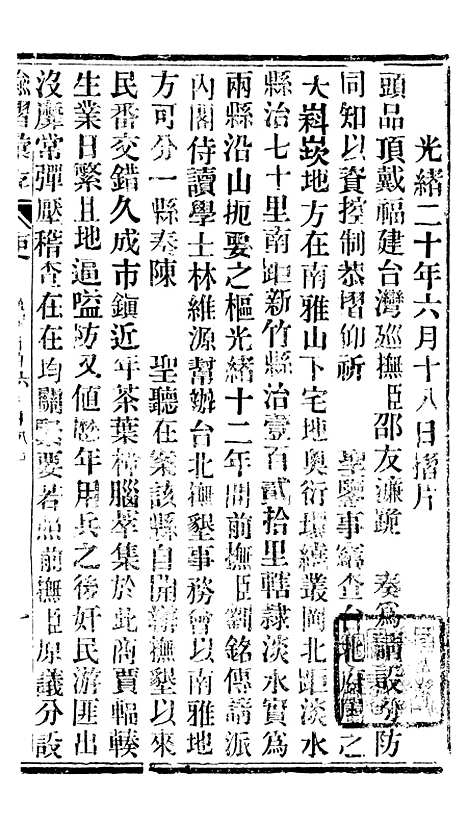 光緒二十年六月十八日摺片
頭品頂戴福建台灣巡撫臣邵友濂跪　奏爲請設分防
同知以資控制恭摺仰祈　聖鑒事竊查台北府屬之
大嵙崁地方在南雅山下宅地奧衍環繞叢岡北距淡水
縣治七十里南距新竹縣治壹百貳拾里轄隷淡水實爲
兩縣沿山扼要之樞光緒十二年間前撫臣劉銘傳請派
內閣侍讀學士林維源幫辦台北撫墾事務會以南雅地
方可分一縣奏陳　聖聽在案該縣自開辦撫墾以來
民番交錯久成市鎮近年茶葉樟腦萃集於此商賈輻輳
生業日繁且地逼嗌防又値歷年用兵之後奸民游匪出
沒靡常彈壓稽查在在均關緊要若照前撫臣原議分設